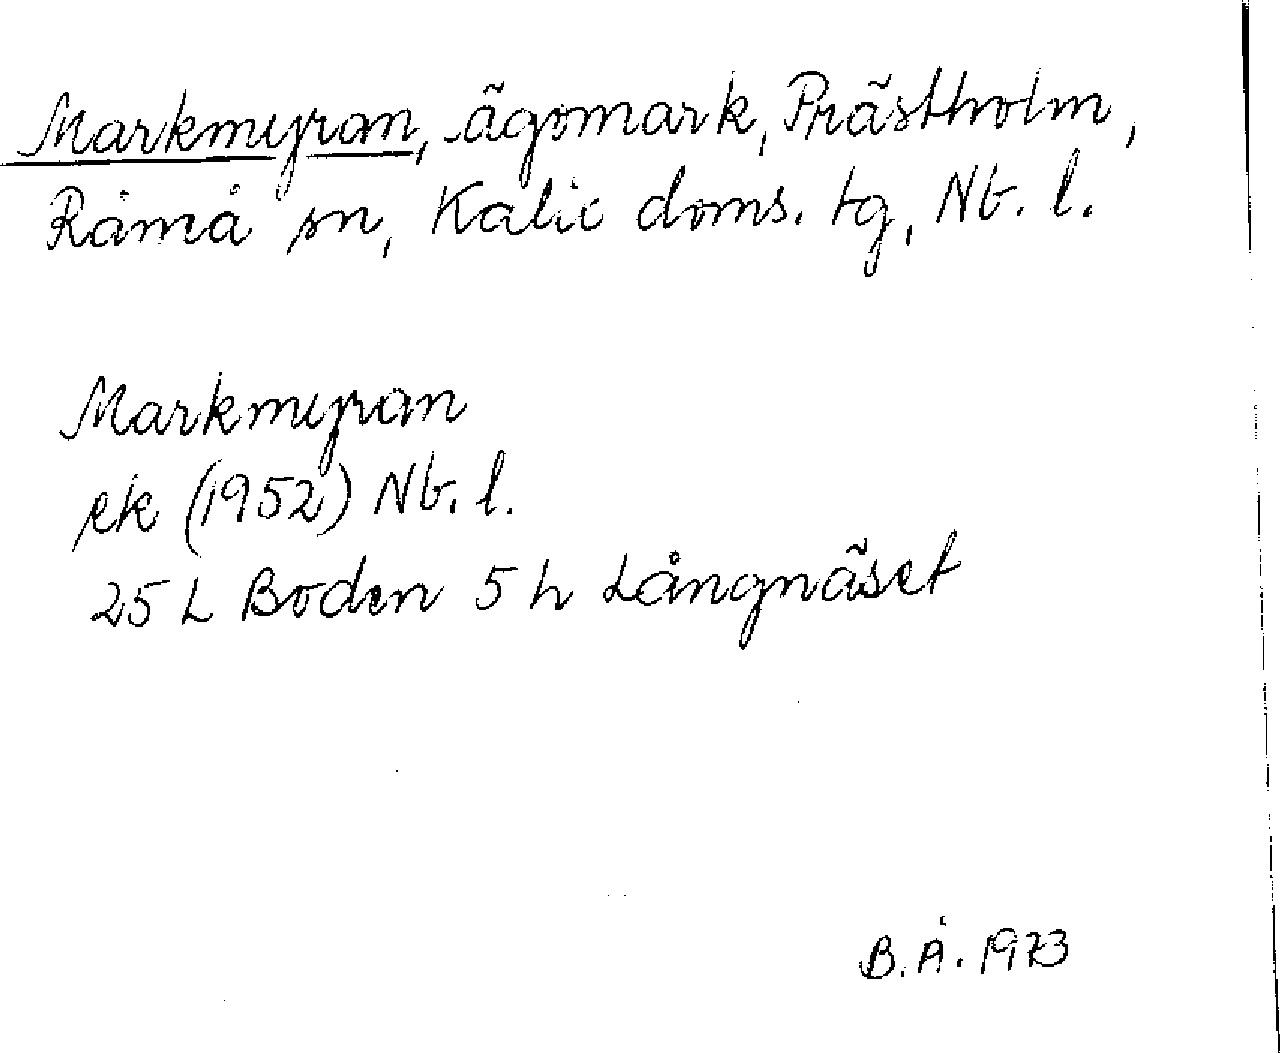 Markmyran, ägomark, Prästholm,
Råneå sn, Kalix doms. tg, Nb. l.
Markmyran
ek (1952) Nb. l.
25 L Boden 5 h Långnäset
B.Å. 1973